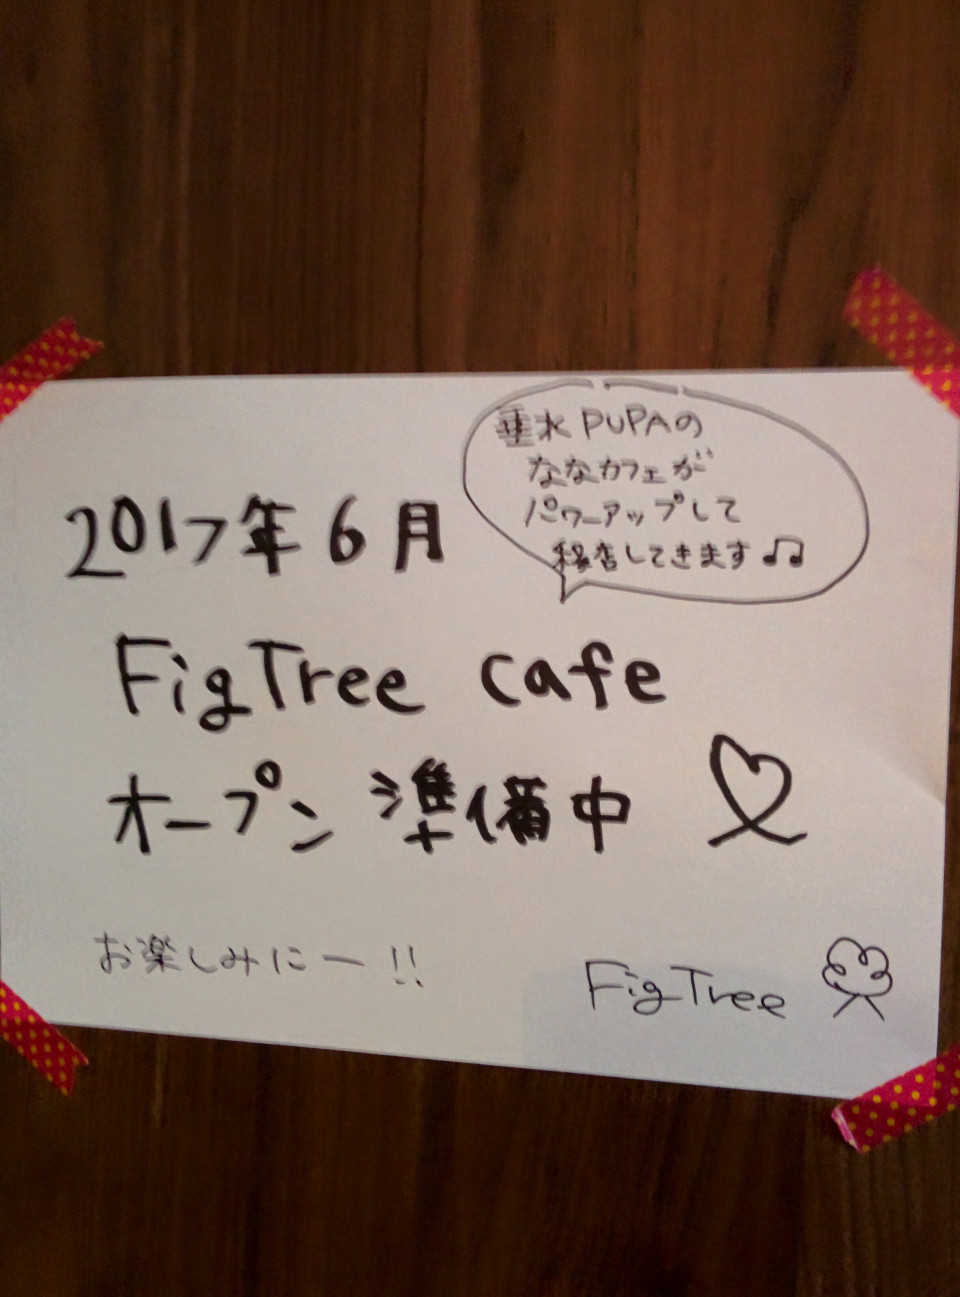 垂水 PUPAの
ななカフェが
パワーアップして
移店してきます♫
2017年6月
FigTree cafe
オープン準備中
お楽しみにー!!
FigTree